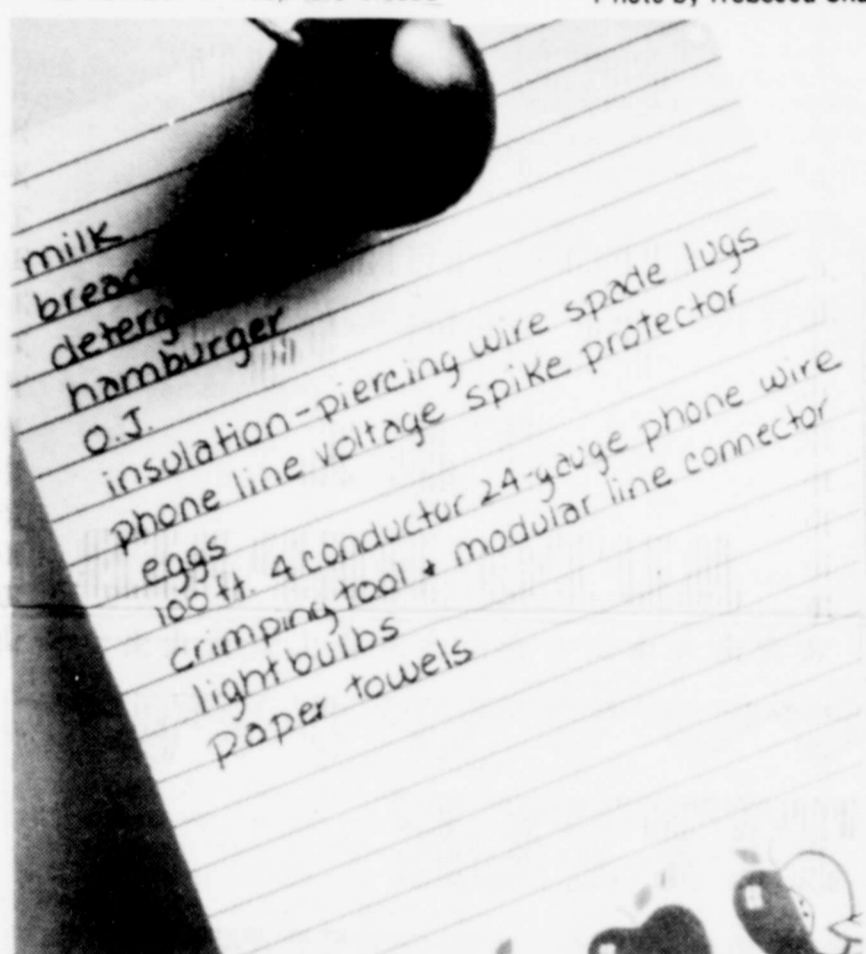 Photo by
milk
bread
deterg
hamburger
O.J.
insulation-piercing wire spade lugs
phone line voltage spike protector
eggs
100 ft. 4 conductor 24-gauge phone wire
crimping tool & modular line connector
light bulbs
paper towels